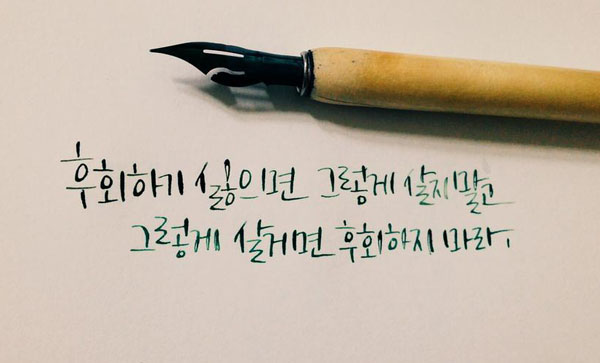 후회하기 싫으면 그렇게 살지말고
그렇게 살거면 후회하지 마라.